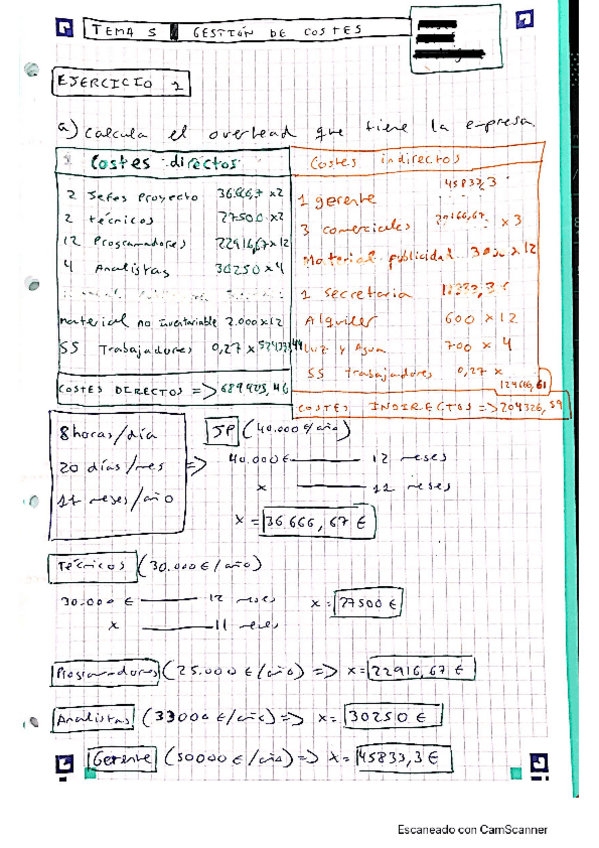 TEMA 5 GESTIÓN DE COSTES
EJERCICIO 1
a) Calcula el overhead que tiene la empresa.
Costes directos
2 Jefes Proyecto 36.666,7 x2
2 técnicos 27500 x2
12 Programadores 22916,67x12
4 Analistas 30250x4
material no inventariable 2.000x12
SS Trabajadores 0,27 x
COSTES DIRECTOS => 689425,46
Costes indirectos
1 gerente 45833,3
3 comerciales x 3
Material publicidad 302 x 12
1 secretaria
Alquiler 600 x 12
Luz y Agua 700 x 4
SS trabajadores 0,27 x
124666,61
COSTES INDIRECTOS => 204326,59
8 horas/día
20 días/mes
11 meses/año
=>
JP (40.000 €/año)
40.000€ 12 meses
x 11 meses
x = 36.666,67 €
Técnicos (30.000€/año)
30.000 € 12 meses x = 27500 €
x 11 meses
Programadores (25.000 €/año) => x = 22916,67 €
Analistas (33000 €/año) => x = 30250 €
Gerente (50000 €/año) => x = 45833,3 €
Escaneado con CamScanner